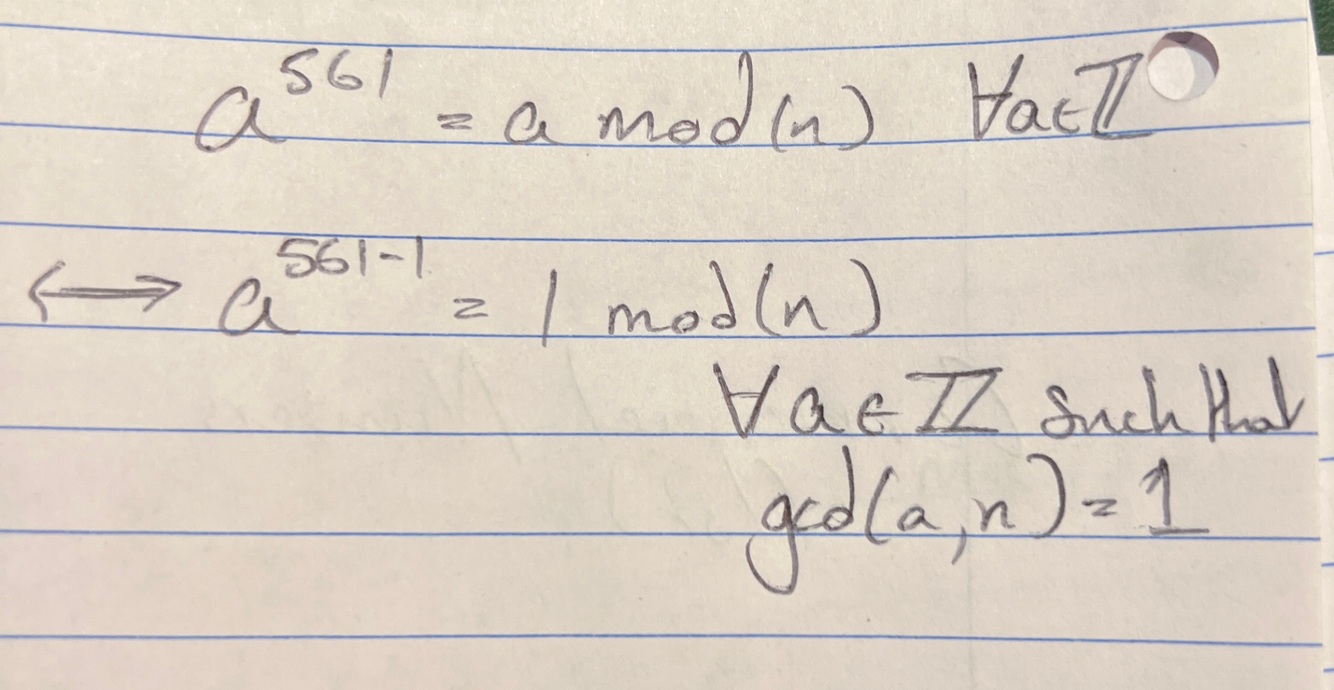 a^561 = a mod(n) ∀a∈ℤ
⟷ a^561-1 = 1 mod(n)
∀a∈ℤ such that
gcd(a,n)=1